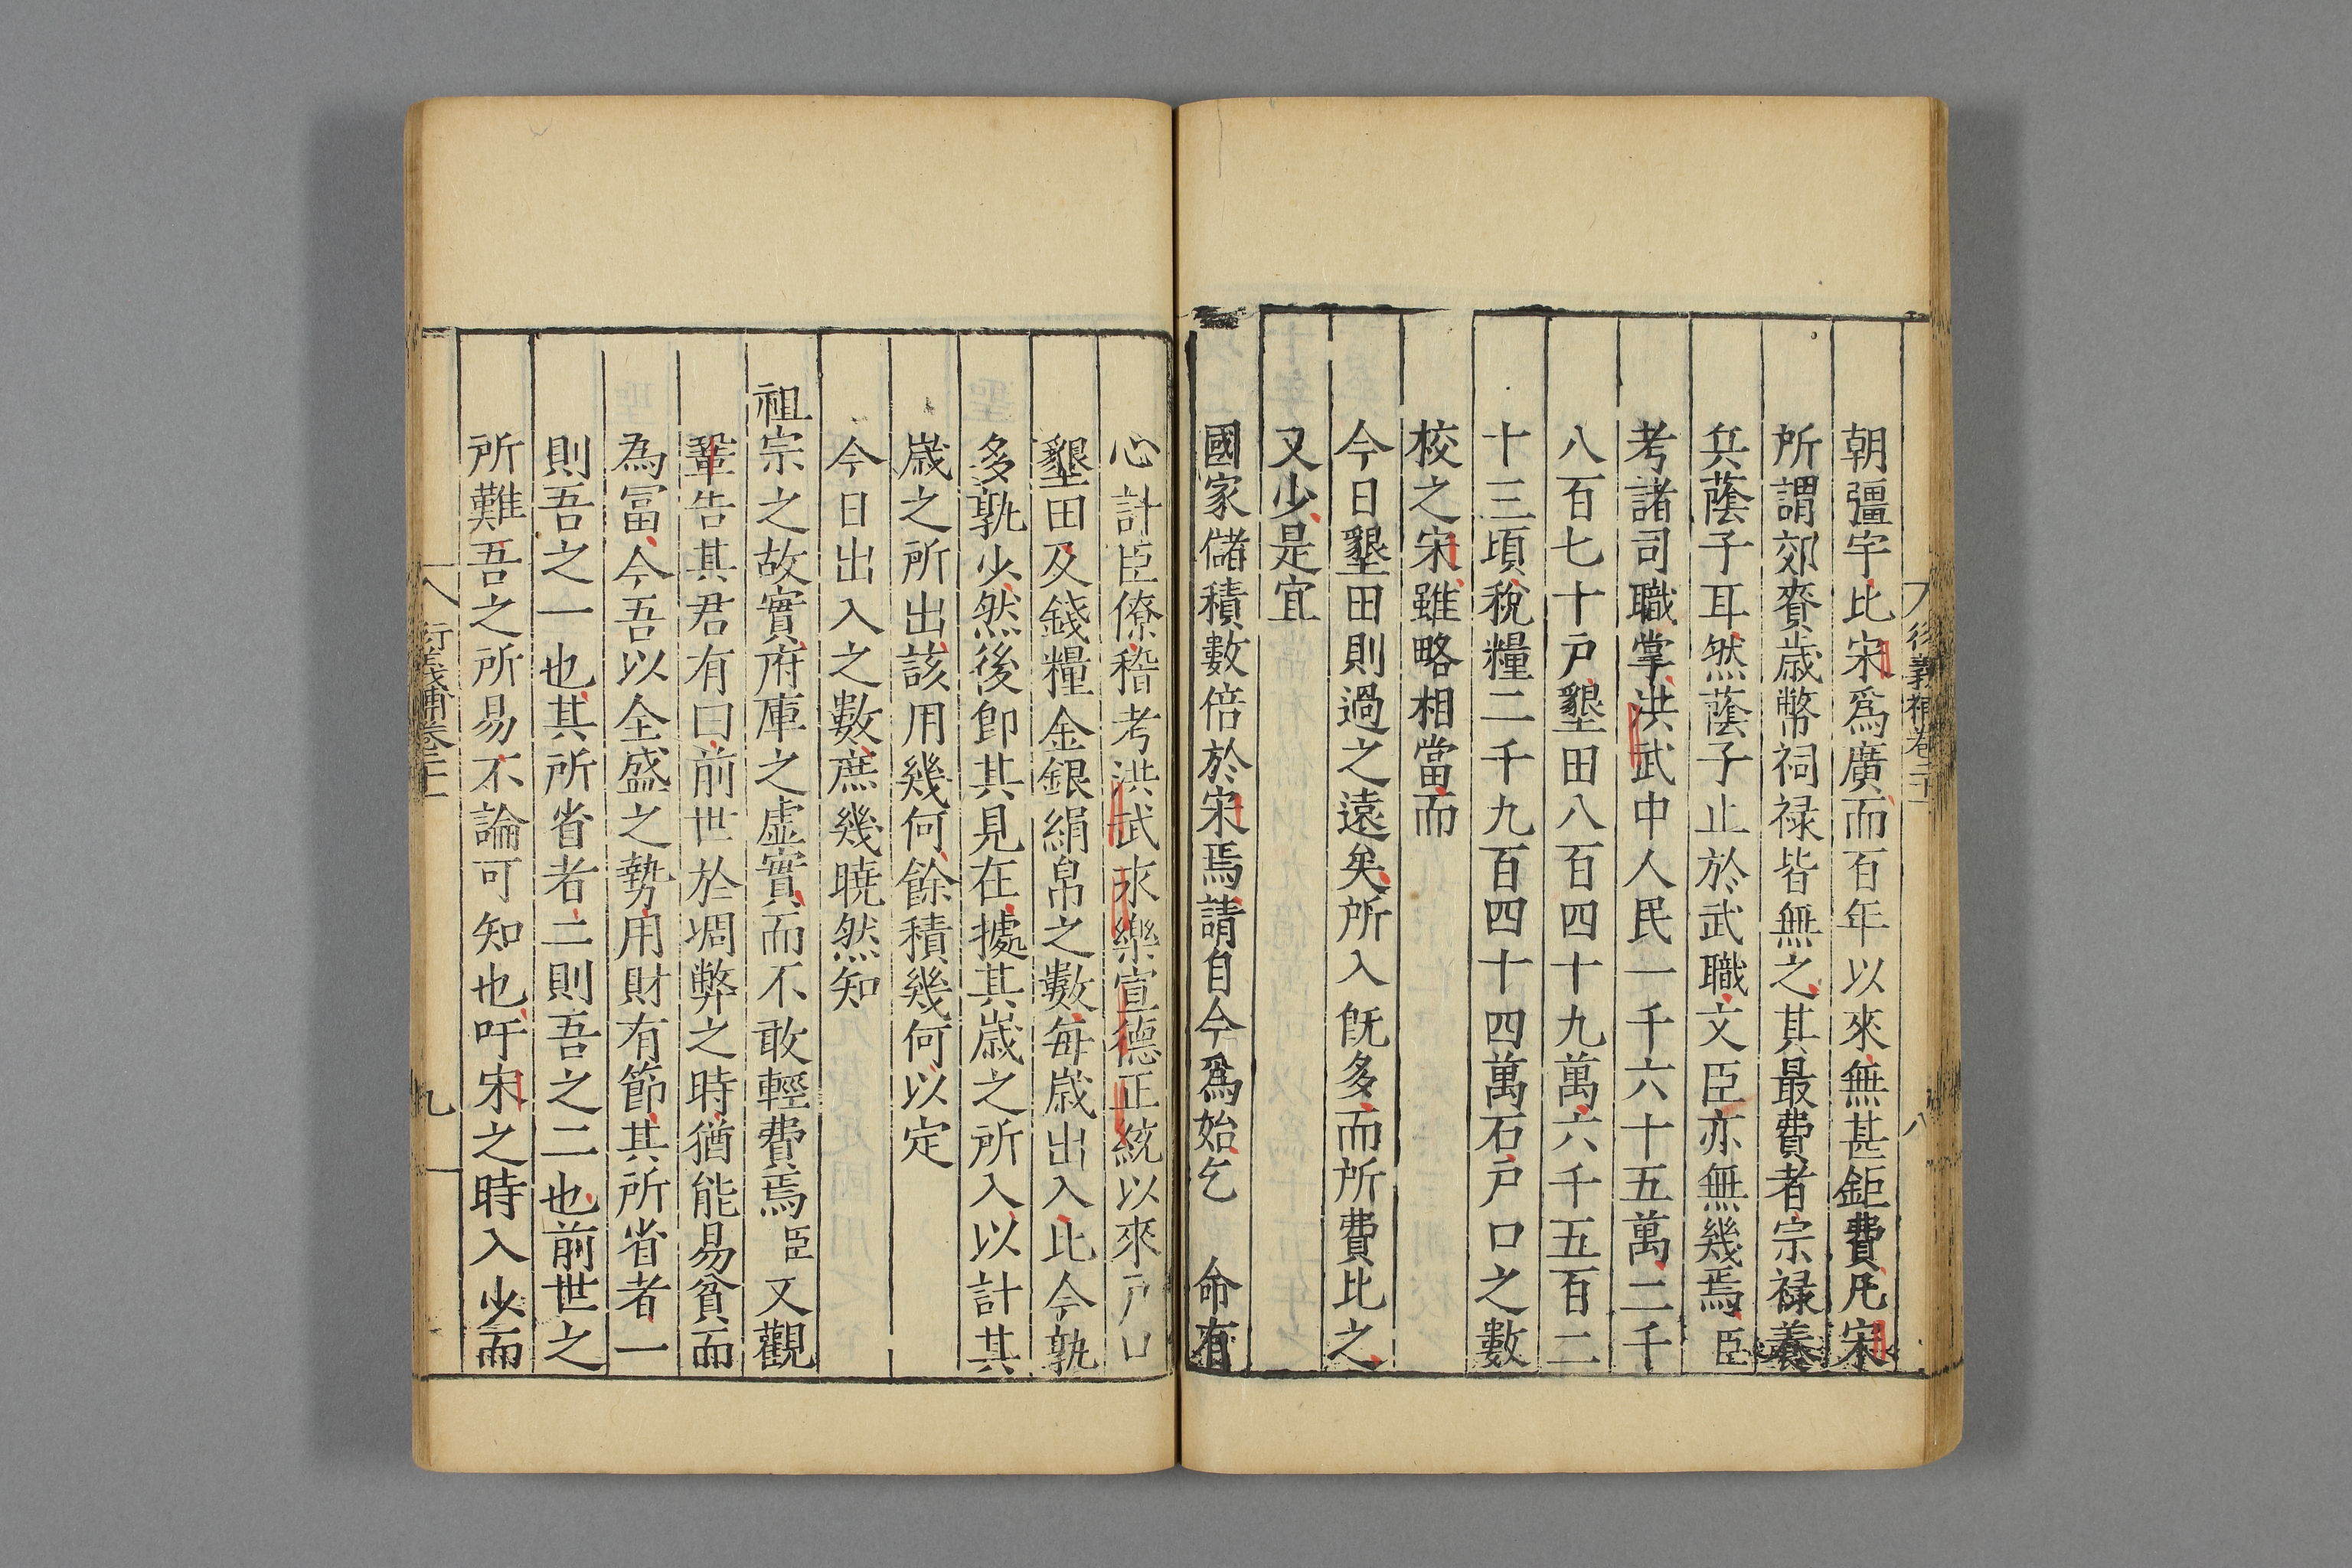 朝彊宇比宋爲廣而百年以來無甚鉅費凡宋
所謂郊賚歲幣祠禄皆無之其最費者宗禄養
兵蔭子耳然蔭子止於武職文臣亦無幾焉臣
考諸司職掌洪武中人民一千六十五萬二千
八百七十戸墾田八百四十九萬六千五百二
十三頃稅糧二千九百四十四萬石戸口之數
校之宋雖略相當而
今日墾田則過之遠矣所入旣多而所費比之
又少是宜
國家儲積數倍於宋焉請自今爲始乞 命有
心計臣僚稽考洪武永樂宣德正統以來戸口
墾田及錢糧金銀絹帛之數每歲出入比今孰
多孰少然後卽其見在據其歲之所入以計其
歲之所出該用幾何餘積幾何以定
今日出入之數庶幾曉然知
祖宗之故實府庫之虛實而不敢輕費焉臣又觀
鞏告其君有曰前世於凋弊之時猶能易貧而
為冨今吾以全盛之勢用財有節其所省者一
則吾之一也其所省者二則吾之二也前世之
所難吾之所易不論可知也吁宋之時入少而
衍義補卷二十一
九